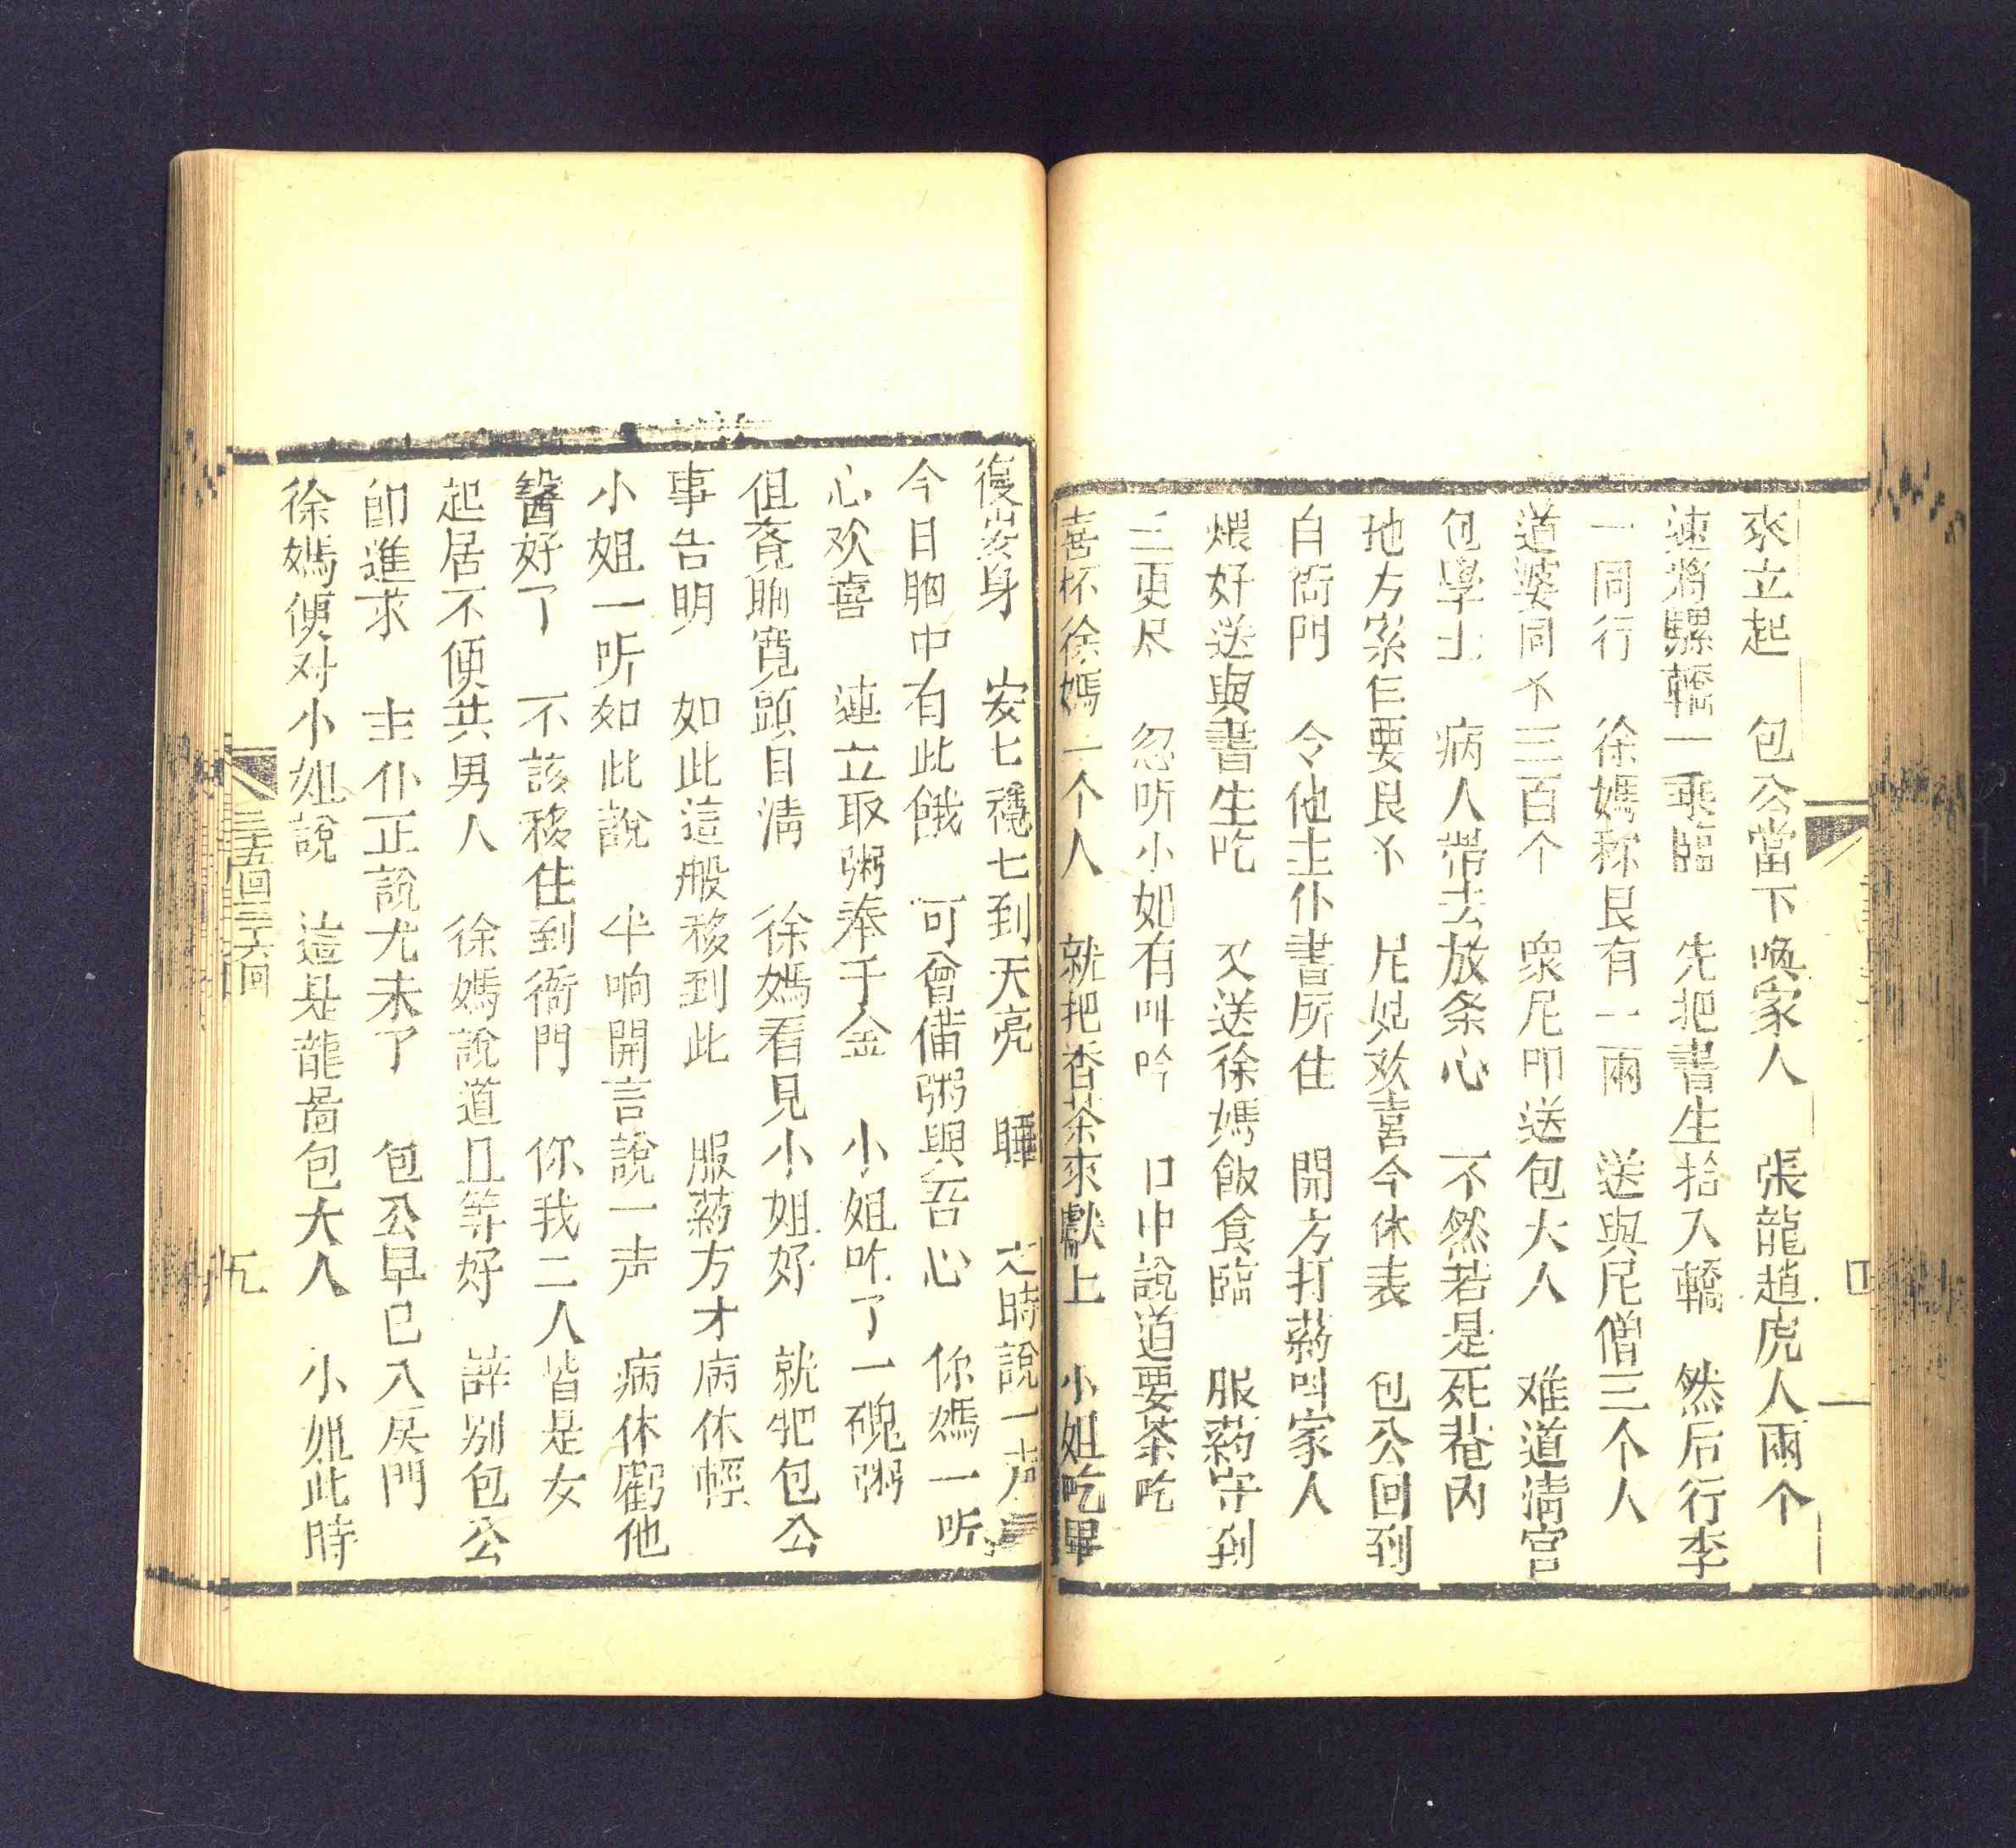 來立起　包公當下喚家人　張龍趙虎人兩个
速將騾轎一乘臨　先把書生抬入轎　然后行李
一同行　徐媽称艮有一兩　送與尼僧三个人
道婆同㐅三百个　衆尼叩送包大人　难道清官
包學士　病人帶去放条心　不然若是死菴內
地方案上要艮㐅　尼姑欢喜今休表　包公回到
白衙門　令他主仆書所住　開方打藥叫家人
煨好送與書生吃　又送徐媽飯食臨　服藥守到
三更尽　忽听小姐有叫吟　口中說道要茶吃
喜杯徐媽一个人　就把香茶來獻上　小姐吃畢
復安身　安七穩七到天亮　睡　之時說一声
今日胸中有此餓　可曾備粥與吾心　你媽一听
心欢喜　連立取粥奉千金　小姐吃了一碗粥
但竟胸寬頭目清　徐媽看見小姐好　就把包公
事告明　如此這般移到此　服藥方才病休輕
小姐一听如此說　半响開言說一声　病休雖他
醫好了　不該移住到衙門　你我二人皆是女
起居不便共男人　徐媽說道且等好　辞別包公
即進求　主仆正說尤未了　包公早已入房門
徐媽便对小姐說　這是龍啚包大人　小姐此時
三十五回三十六回
九